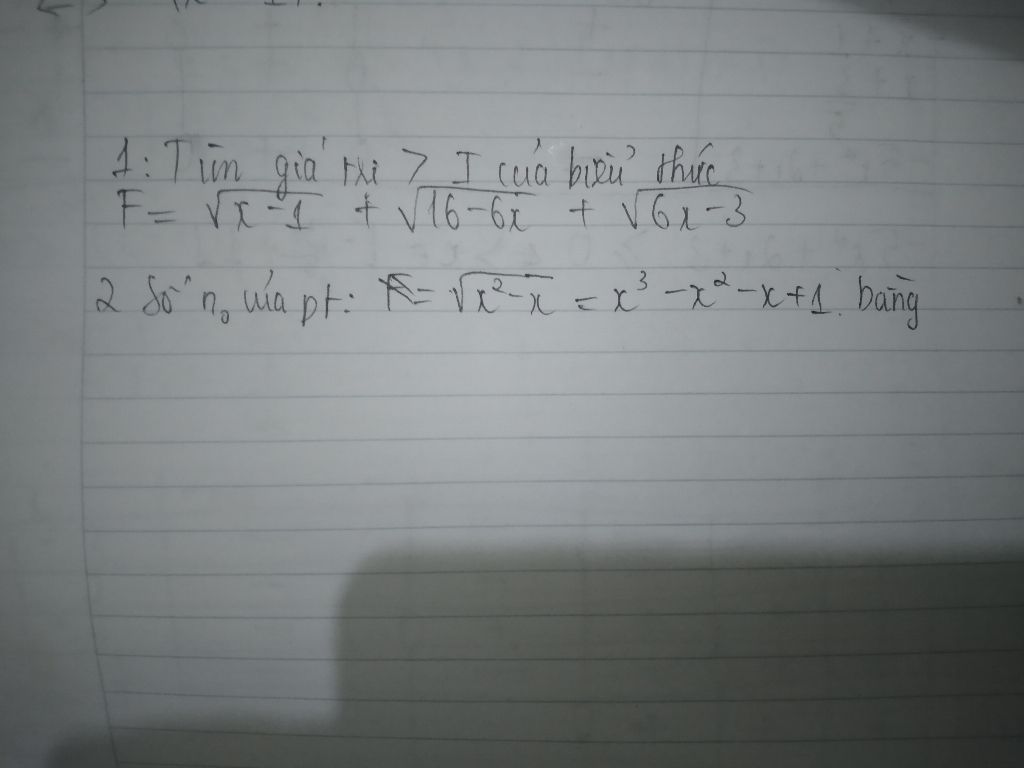 1: Tìm giá trị > I của biểu thức
F = √x-1 + √16-6x + √6x-3
2 Số n₀ của pt: √x²-x = x³-x²-x+1. bằng